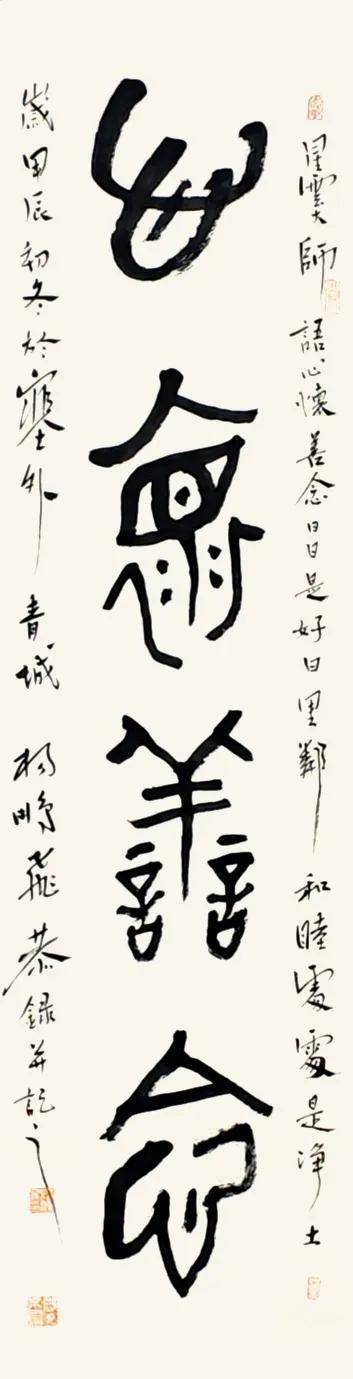 心懷善念
星雲大師語心懷善念日日是好日里鄰和睦處處是净土
歲甲辰初冬於塞外青城楊鵬飛恭録并記之